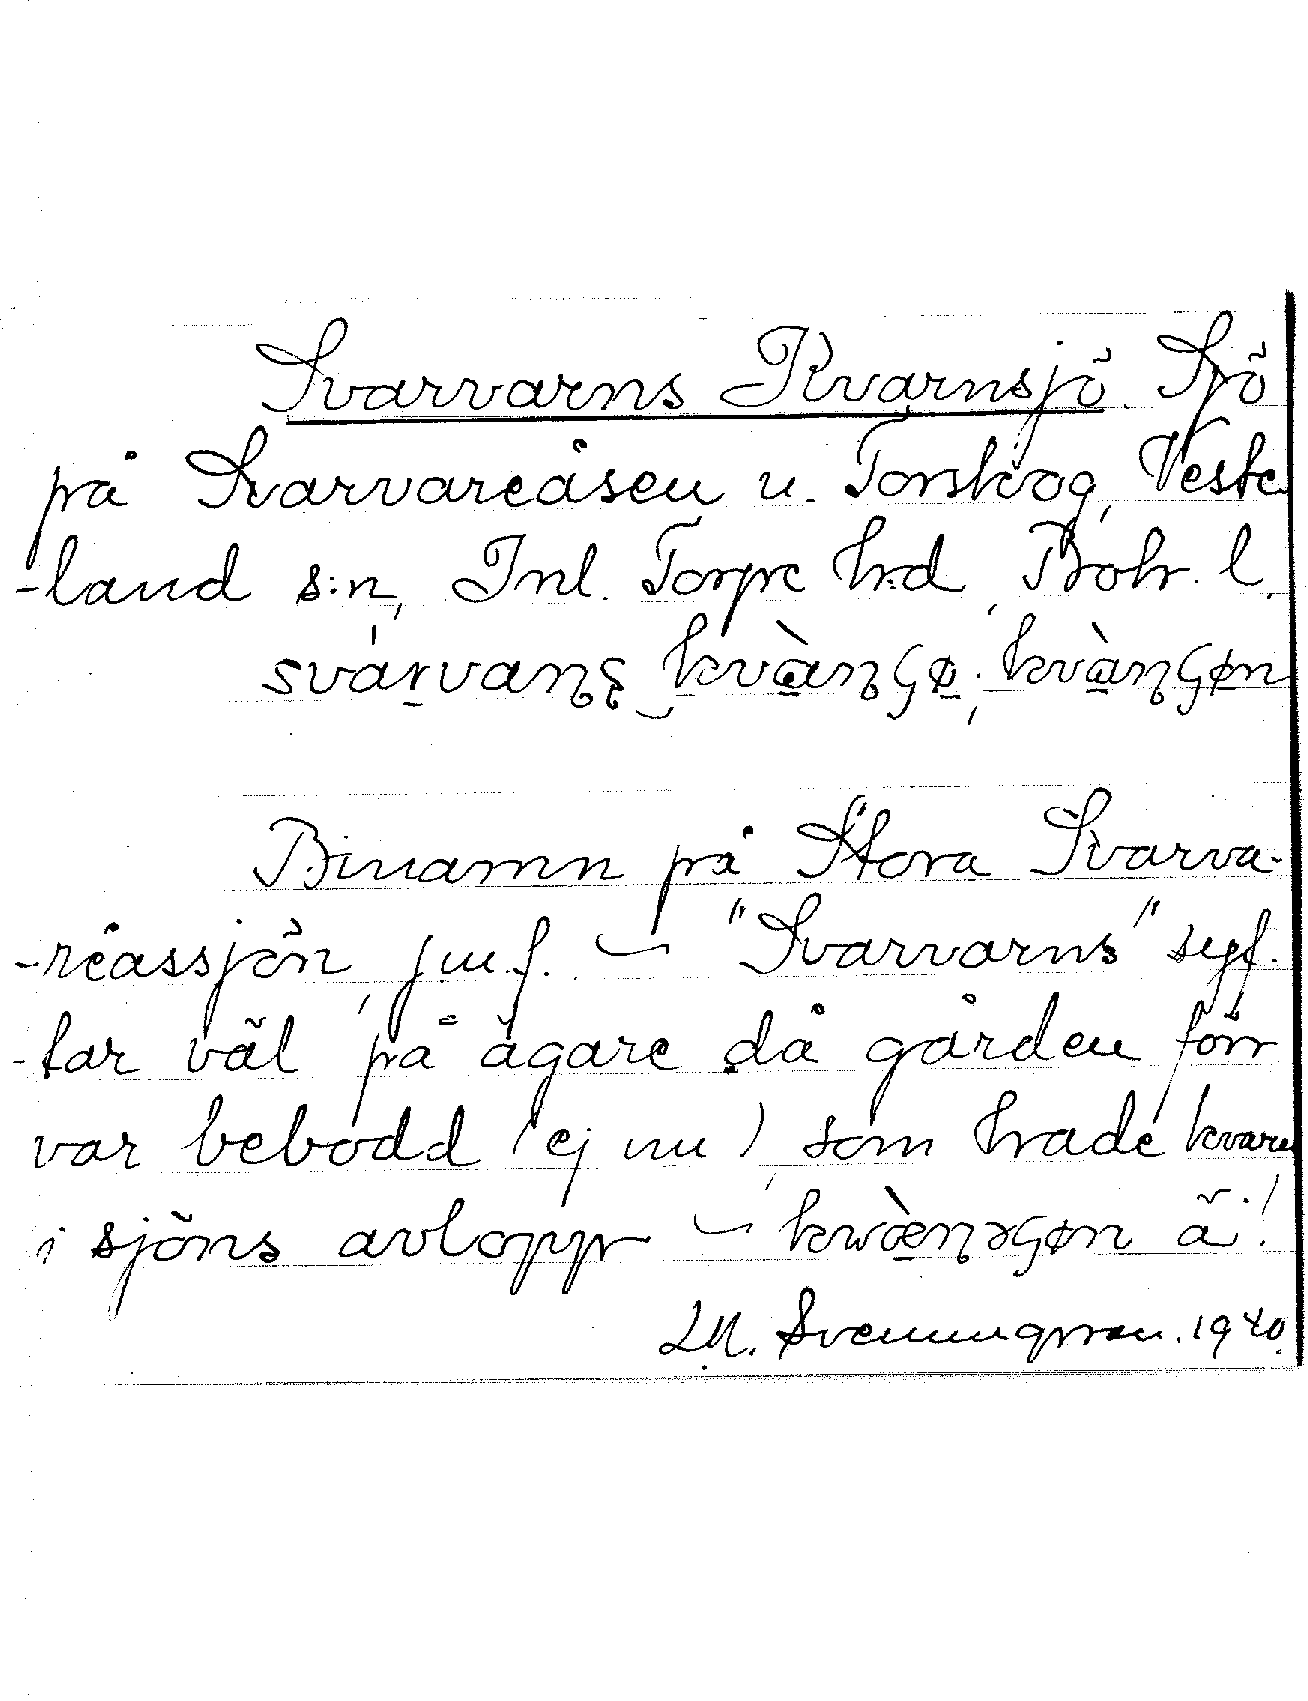 Svarvarns Kvarnsjö. Sjö
på Svarvareåsen u. Torskog, Veste
-land s:n, Inl. Torpe hd, Boh. l.
Binamn på Stora Svarva-
-reåssjön, jmf. – "Svarvarns" syf-
-tar väl på ägare då gården förr
var bebodd (ej nu), som hade kvarn
i sjöns avlopp – ä!
M. Svenungsson. 1940.